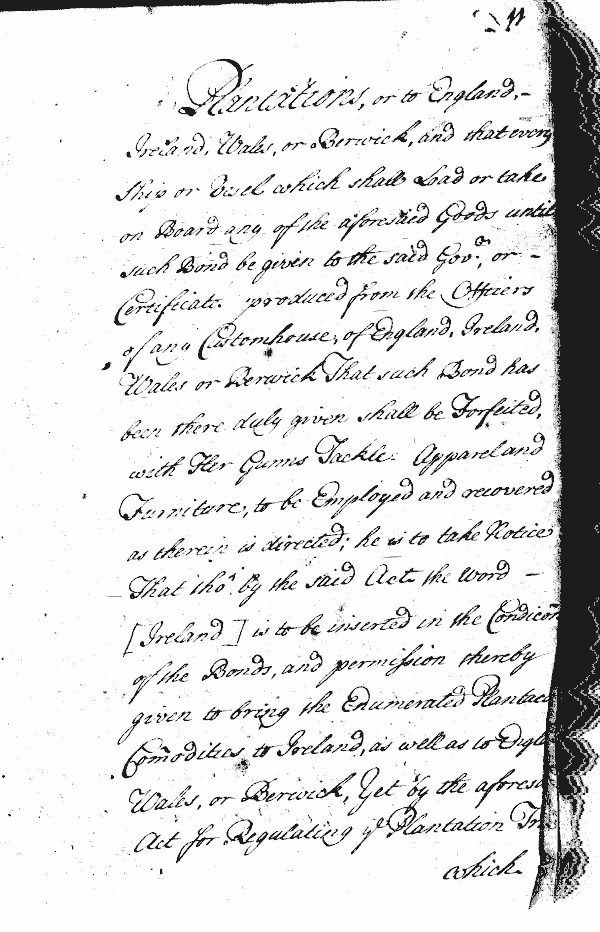 11
Plantations, or to England,-
Ireland, Wales, or Berwick, and that every
Ship or Vesel which shall Load or take
on Board any of the aforesaid Goods until
such Bond be given to the said Gov.r, or -
Certificate produced from the Officers
of any Customhouse, of England, Ireland,
Wales or Berwick That such Bond has
been there duly given shall be Forfeited,
with Her Gunns Tackle Apparel and
Furniture, to be Employed and recovered
as therein is directed; he is to take Notice
That tho' by the said Act the word -
[Ireland] is to be inserted in the Condicon
of the Bonds, and permission thereby
given to bring the Enumerated Plantac
Comodities to Ireland, as well as to Engla
Wales, or Berwick, Yet by the aforesa
Act for Regulating ye Plantation Tr
which